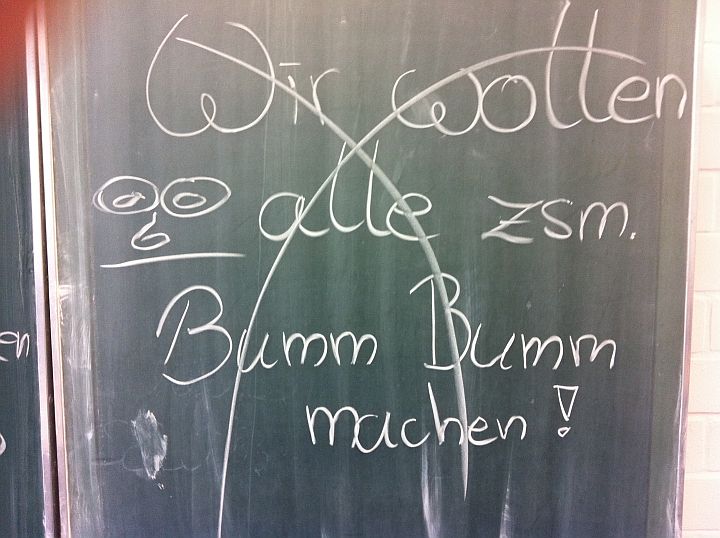 Wir wollen
alle zsm.
Bumm Bumm
machen!
en